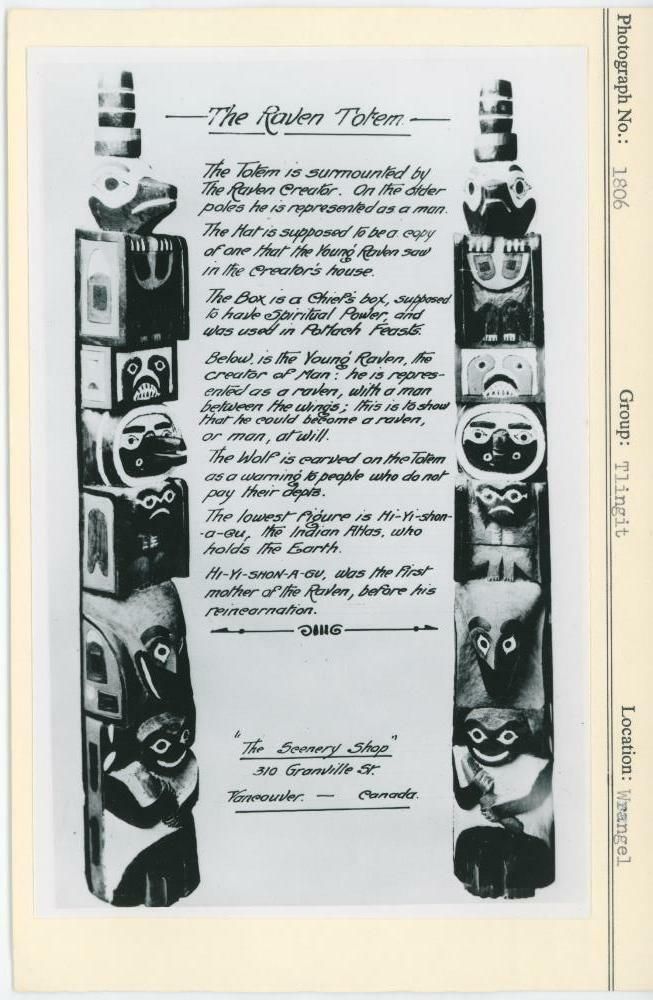 The Raven Totem
The Totem is surmounted by
The Raven Creator. On the older
poles he is represented as a man.
The Hat is supposed to be a copy
of one that the Young Raven saw
in the creator's house.
The Box is a Chief's box, supposed
to have Spiritual Power, and
was used in Potlach Feasts.
Below, is the Young Raven, the
creator of Man: he is repres-
ented as a raven, with a man
between the wings; this is to show
that he could become a raven,
or man, at will.
The Wolf is carved on the Totem
as a warning to people who do not
pay their depts.
The lowest figure is Hi-Yi-shon-
-a-Gu, the Indian Atlas, who
holds the Earth.
Hi-Yi-SHON-A-GU, was the First
mother of the Raven, before his
reincarnation.
"The Scenery Shop"
310 Granville St.
Vancouver. — Canada.
Photograph No.: 1806
Group: Tlingit
Location: Wrangel